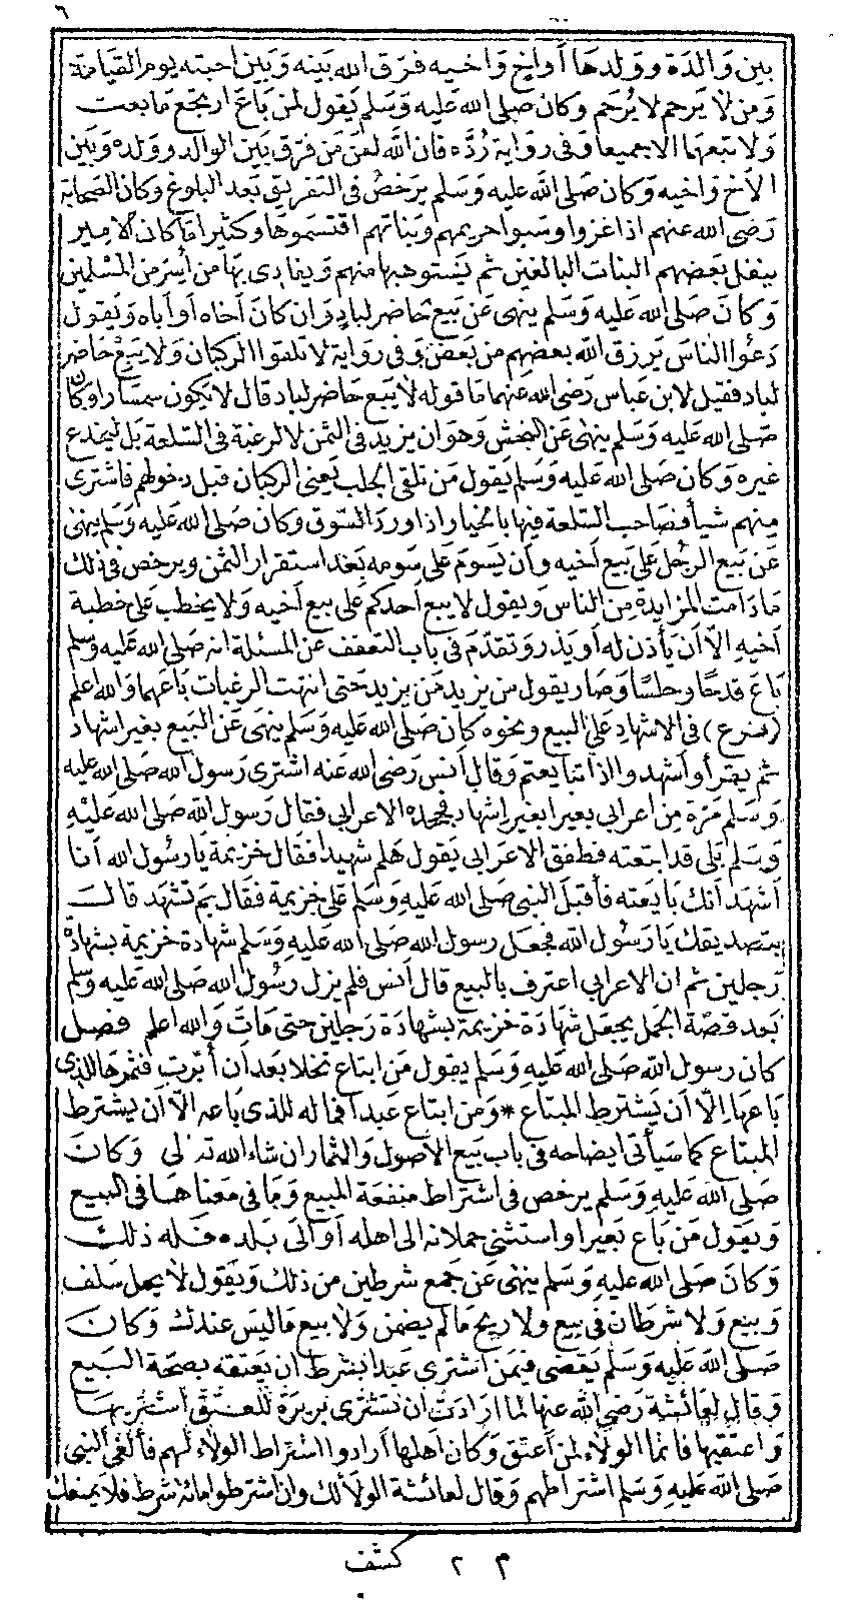 ٦
بين وَالدَة وولدهَا أَوأخ وَاخيه فرّق الله بَينه وَبَين احبته يوم القيامَة
وَمن لَا يَرحم لَا يُرحَم وَكان صَلى الله عَليه وَسَلم يَقول لمن بَاعَ ارتجع مَا بعت
وَلا تبعهما الا جميعا وَفى روَاية رُدَّه فان الله لعَن مَن فرّق بَين الوالد وولده وَبَين
الأخ وَاخيه وَكان صَلى الله عليه وَسَلم يرَخصُ فى التفريق بَعد البلوغ وكان الصَحابة
رَضى الله عنهم اذا غزوا وسَبوا حريمهم وَبناتهم اقتسموهَا وكثيرا مَا كان الامير
ينفل بَعضهم البنات البالغين ثم يَستوهبها منهم وَيفادى بهَا من أسِرَ من المسْلمين
وَكانَ صَلى الله عَليه وَسَلم ينهى عَن بَيع حَاضر لبادٍ وَان كانَ أخاه أو أباه وَيَقول
دَعُوا الناسَ يَرزق الله بعضهم من بَعض وَفى روَاية لا تلقوا الركبان وَلا يَبِعْ حَاضر
لباد فقيل لابن عَباس رَضى الله عَنهما مَا قوله لا يَبع حَاضر لباد قال لا يَكون سمسَارا وَكانَ
صَلى الله عليه وَسَلم ينهى عَن النجش وَهوَ ان يزيد فى الثمن لا لرغبة فى السّلعة بَل ليخدع
غيره وَكان صَلى الله عَليه وَسَلم يَقول مَن تلقى الجلب يَعنى الركبان قبل دخولهم فاشترى
منهم شيأ فصَاحب السّلعة فيها بالخيار اذا وردَ السّوق وكان صَلى الله عَليه وَسَلم ينهى
عَن بَيع الرجُل عَلى بَيع أخيه وأن يَسومَ عَلى سَومه بَعْد استقرار الثمن ويرخص فى ذلك
مَا دَامت المزايدة من الناس وَيقول لا يبع أحدكم عَلى بيع أخيه وَلا يخطب عَلى خطبة
أخيهِ الّا أن يَأذن له أو يذر وَتقدّمَ فى باب التعفف عن المسئلة انه صَلى الله عَليه وَسلم
بَاعَ قدحًا وحلسًا وَصَار يقول من يزيد مَن يزيد حَتى انتهت الرغبات باعَهما وَالله اعلم
(فرع) فى الاشهاد عَلى البيع ونحوه كان صَلى الله عليه وَسَلم ينهَى عَن البَيع بغير اشهاد
ثم يقرأ وأشهدوا اذا تبايعتم وَقال أنس رَضى الله عَنه اشترى رَسول الله صَلى الله عَليه
وَسَلم مَرّة من اعرابى بعيرا بغير إشهاد فجحده الاعرابى فقال رَسول الله صَلى الله عَليْهِ
وَسَلم بَلى قد ابتعته فطفق الاعرابى يَقول هَلم شهيدا فقال خزيمة يَا رسُول الله أنا
أشهَد أنك بَايَعته فأقبَل النبى صَلى الله عَليهِ وَسَلم عَلى خزيمة فقال بم تشهَد قالَ
بتصديقك يَا رَسُول الله فجعل رسول الله صَلى الله عَليهِ وَسَلم شهادة خزيمة بشهادة
رَجلين ثم ان الاعرابى اعترف بالبيع قال أنس فلم يزل رسُول الله صَلى الله عَليه وَسلم
بَعد قصّة الجمَل يجعَل شهَادَة خزيمة بشهادَة رَجلين حتى مَاتَ وَالله اعلم فصل
كان رسول الله صَلى الله عَليهِ وَسَلم يقول مَن ابتاع نخلا بعد أن أبّرت فثمرهَا للذى
بَاعهَا الّا أن يَشترط المبتاع * وَمن ابتاع عَبدا فماله للذى بَاعه الّا أن يشترط
المبتاع كما سَيأتى ايضاحه فى باب بَيع الأصول وَالثمار ان شاء الله تعالى وَكانَ
صَلى الله عَليهِ وَسَلم يرخص فى اشتراط منفعَة المبيع وَمَا فى مَعناهَا فى البيع
وَيَقول مَن بَاع بَعيرا واستثنى حملانه الى اهله أو الى بَلده فله ذلكَ
وَكانَ صَلى الله عليهِ وَسَلم ينهَى عَن جَمع شرطين من ذلك وَيَقول لا يحل سَلف
وَبيع وَلا شرطان فى بيع ولا ربح مَا لم يضمن وَلا بيع مَا ليسَ عندك وَكانَ
صَلى الله عَليهِ وَسَلم يَقضى فيمَن اشترى عَبدا بشرط ان يَعتقه بصحة البَيع
وَقال لعَائشة رَضى الله عنها لما ارَادَت ان تشترى بريرة للعتق اشتريها
وَاعتقيهَا فانما الولَاء لمن أعتق وَكان أهلها أرادوا اشتراط الولَاء لهم فألغى النبى
صَلى الله عَليهِ وَسَلم اشتراطهم وَقال لعائشة الولَاء لك وان اشترطوا مائة شرط فلا يمنعك
م ٢ كشف